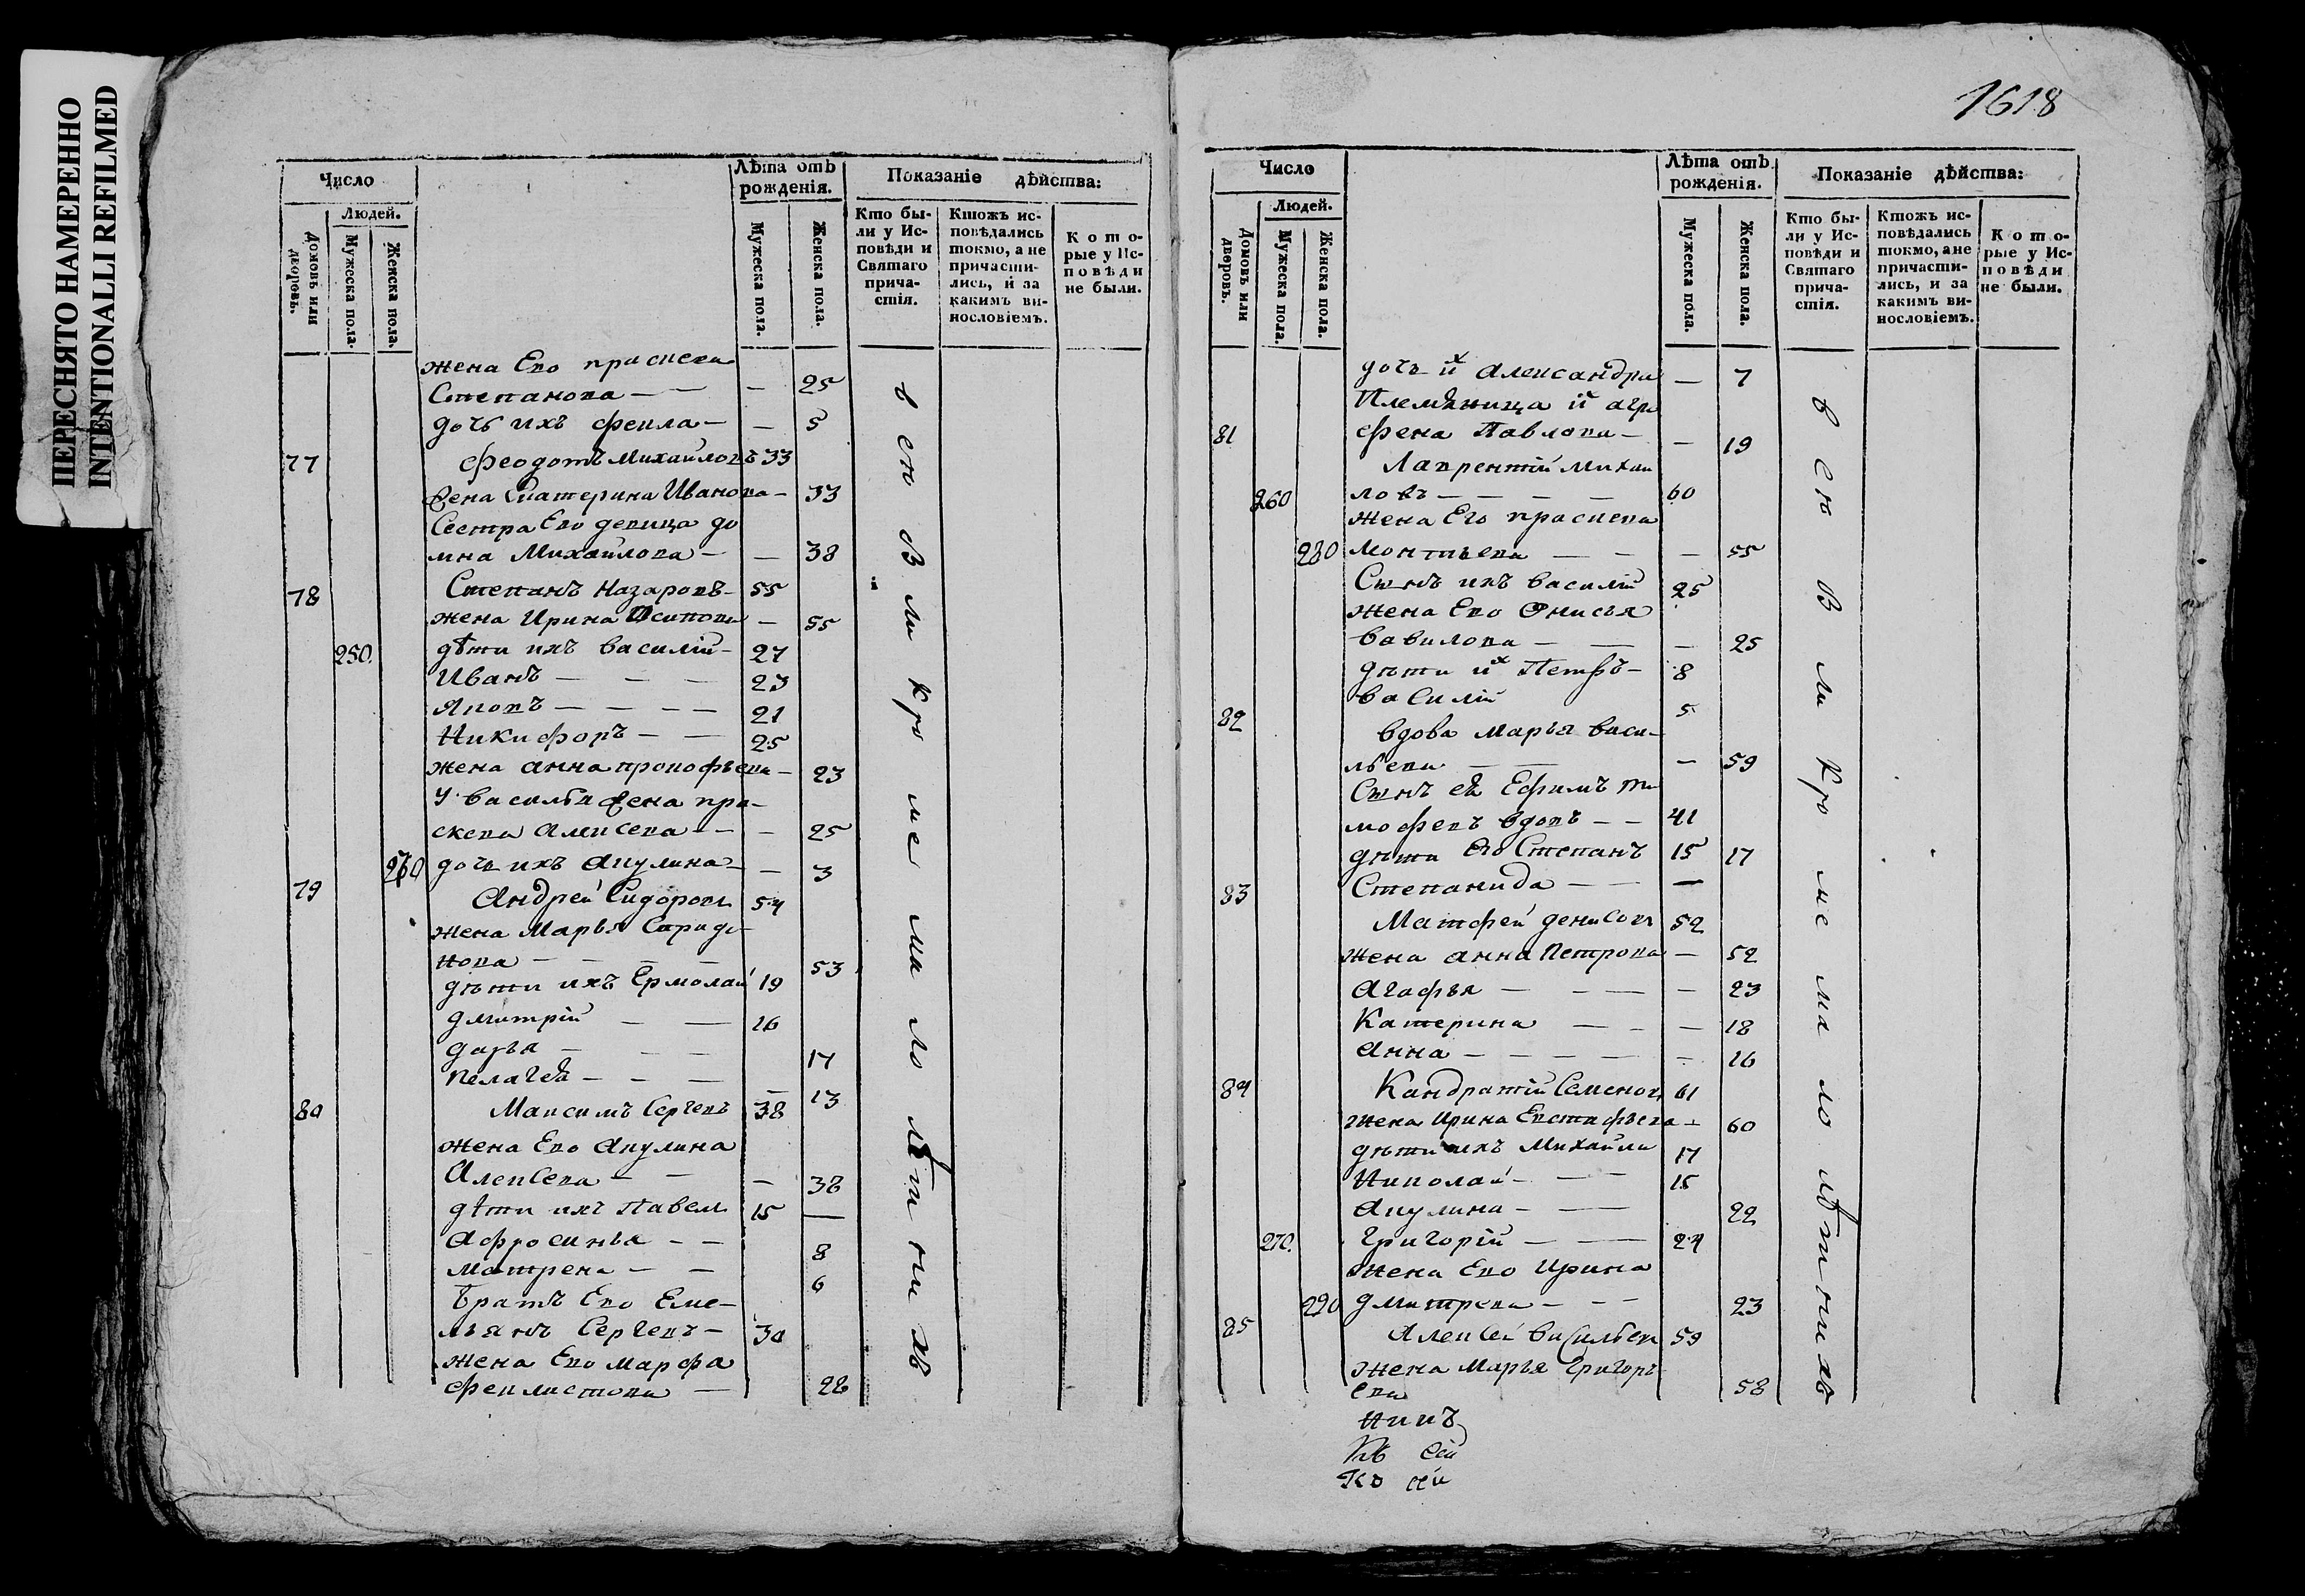 ПЕРЕСНЯТО НАМЕРЕННО
INTENTIONALLI REFILMED
Число
Лѣта отъ рожденія.
Показаніе дѣйства:
Людей.
Домовъ или дворовъ.
Мужеска пола.
Женска пола.
Мужеска пола.
Женска пола.
Кто были у Исповѣди и Святаго причастія.
Ктожъ исповѣдались токмо, а не причастились, и за какимъ винословіемъ.
Которые у Исповѣди не были.
жена Его праскева
Степанова — — — 25
дочь ихъ фекла — — 5
77 Феодотъ Михайловъ 33
жена Катерина Иванова — 33
Сестра Его девица до
мна Михайлова — — 38
78 Степанъ Назаровъ — 55
жена Ирина Осипова — 55
250. дѣти ихъ василій — 27
Иванъ — — — 23
Яковъ — — — — 21
Никифоръ — — 25
жена анна прокофьева — 23
У василья жена пра-
скева Алексева — — — 25
270 дочь ихъ Акулина — — 3
79 Андрей Сидоровъ 54
жена Марья Спиридо-
нова — — — — 53
дѣти ихъ Ермолай 19
дмитрій — — 16
дарья — — — 17
Пелагея — — — — 13
80 Максимъ Сергевъ 38
жена Его Акулина
Алексева — — — 38
дѣти ихъ Павелъ 15 —
Афросинья — — 8
Матрена — — 6
братъ Его Еме-
льянъ Сергевъ — 30
жена Его Марфа
феклистова — 28
всѣ были кроме малолѣтнихъ
1618
Число
Лѣта отъ рожденія.
Показаніе дѣйства:
Людей.
Домовъ или дворовъ.
Мужеска пола.
Женска пола.
Мужеска пола.
Женска пола.
Кто были у Исповѣди и Святаго причастія.
Ктожъ исповѣдались токмо, а не причастились, и за какимъ винословіемъ.
Которые у Исповѣди не были.
дочь их Александра — 7
Племяница их агра
фена Павлова — — 19
81 Лаврентій Михаи
260 ловъ — — — — 60
жена Его праскева
280 — — — 55
Сынъ ихъ василій 25
жена Его Анисья
вавилова — — — 25
дѣти их Петръ — 8
василій 5
82 вдова Марья васи-
льева — — — 59
Сынъ ея Ефимъ ти
мофевъ вдовъ — — 41
дѣти Его Степанъ 15 17
Степанида — — —
83 Матфей денисовъ 52
жена анна Петрова — 52
Агафья — — — — 23
Катерина — — — 18
Анна — — — — — 16
84 Кандратій Семеновъ 61
жена Ирина Евстафьева — 60
дѣти ихъ Михайла 17
Николай — — — 15
Акулина — — 22
270. Григорій — — 24
жена Его Ирина
290 дмитрева — — — 23
85 Алексей васильевъ 59
жена Марья Григорь
ева 58